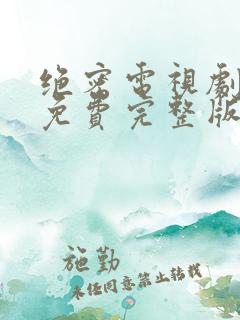 绝密電視劇
免費完整版
施勤
未经同意禁止转载